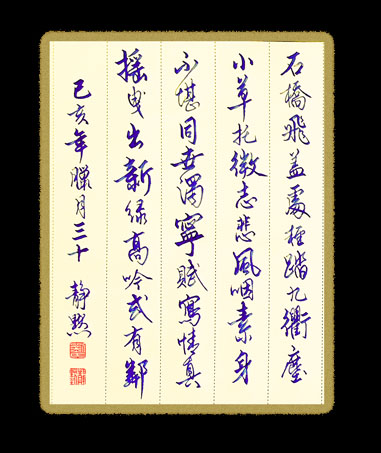 石橋飛盖處踏九衢塵
小草托微志悲風咽素身
不堪同世濁寧賦寫情真
摇曳出新綠高吟或有鄰
己亥年臘月三十 静默